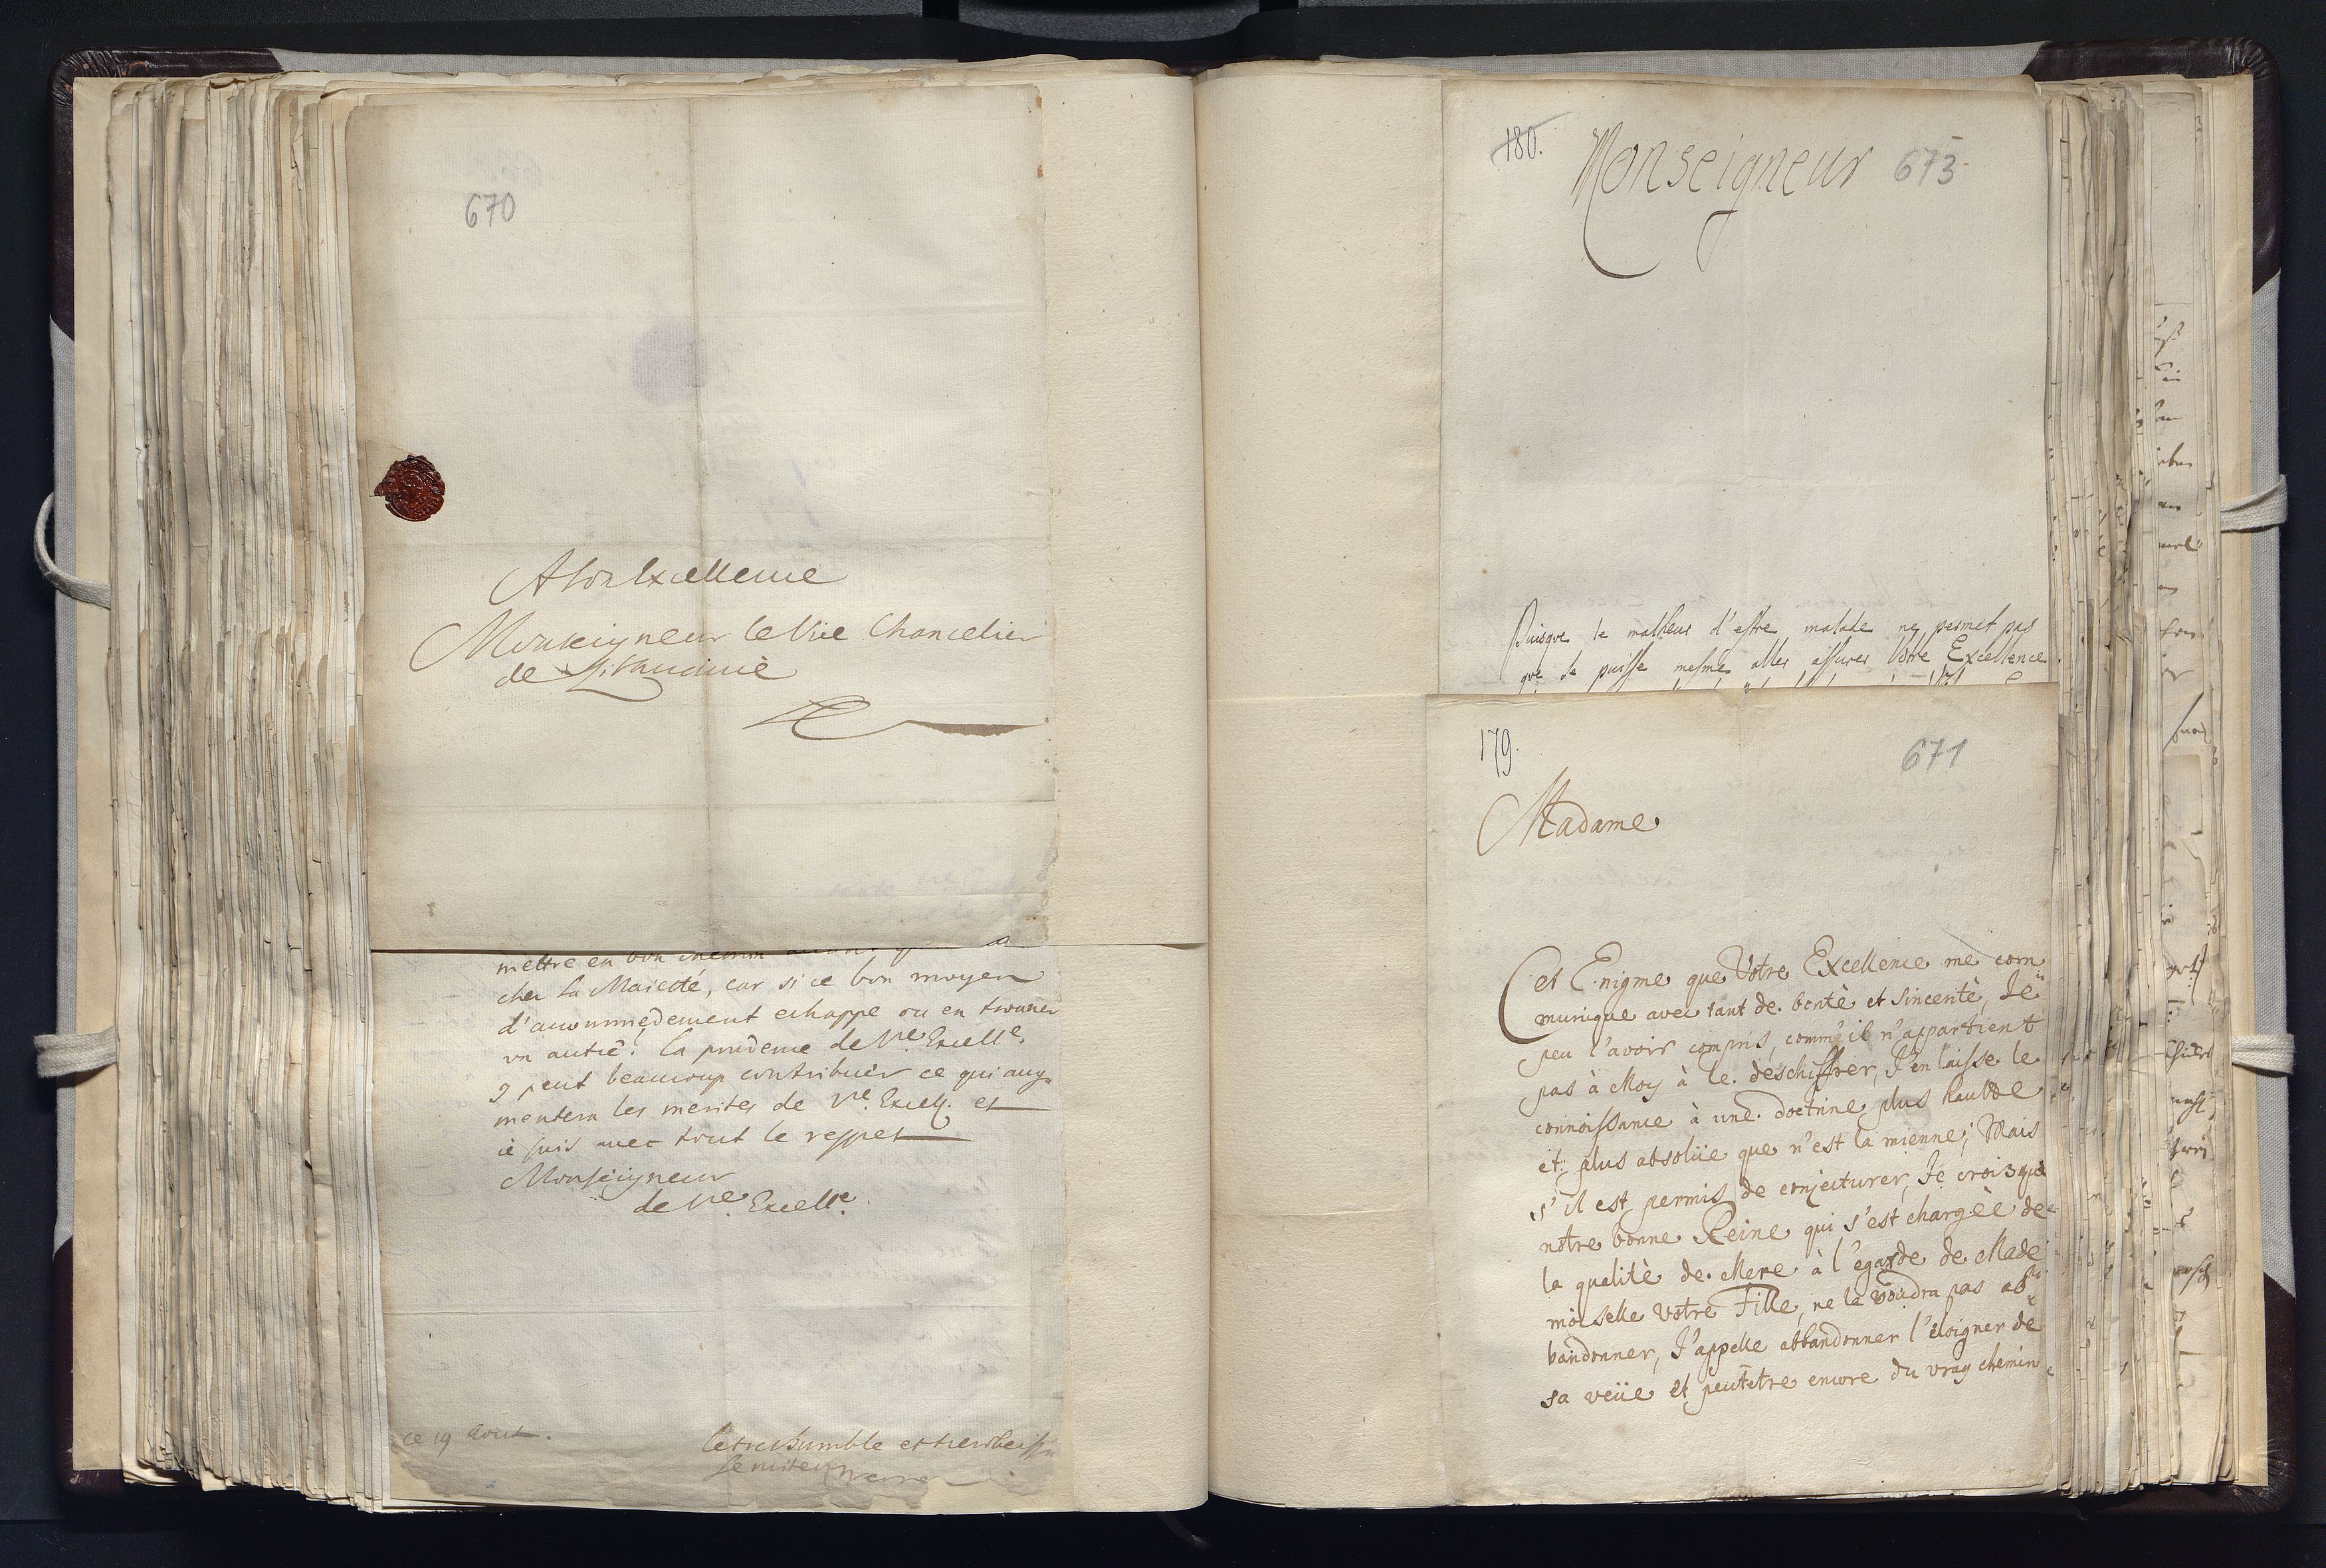 670
A Son Excellence
Monseigneur le Vice Chancelier
de Lithuanie
mettre en bon chemin
cher Sa Maiesté, car si ce bon moyen
d'accommodement echappe ou en trouuer
vn autre? la prudence de Vre Excelle.
y peut beaucoup contribuer ce qui aug=
mentera les merites de Vre Excell. et
ie suis avec tout le respet
Monseigneur
de Vre Excelle.
ce 19 Aout.
le tres humble et tres obeiss
seruiteur
180.
Monseigneur 673
Puisque le malheur d'estre malade ne permet pas
que Je puisse mesme aller assurer Votre Excellence
179.
671
Madame
Cet Enigme que Votre Excellence me com
munique avec tant de bonté et Sincerité, Je
peu l'avoir compris, comm'il n'appartient
pas à Moy à le deschiffrer, J'en laisse le
connoissance à une doctrine plus haulte
et plus absolüe que n'est la mienne; Mais
s'il est permis de conjecturer, Je crois que
nôtre bonne Reine qui s'est chargèe de
la qualitè de Mere à l'egarde de Made
moiselle Vôtre Fille, ne la voudra pas ab
bandonner, J'appelle abbandonner l'éloigner de
sa veüe et peutetre encore du vray chemin